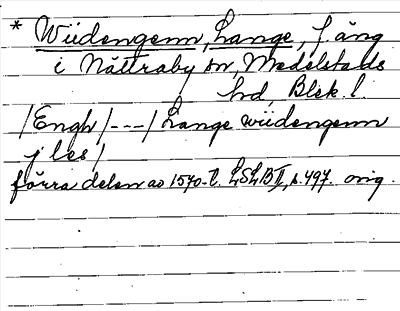 * Wiidengenn, Lange, f. äng
i Nättraby sn, Medelstads
hd, Blek. l.
/Engh/---/ Lange wiidengenn
j les/
förra delen av 1570-t. LSLB II, s. 497. orig.